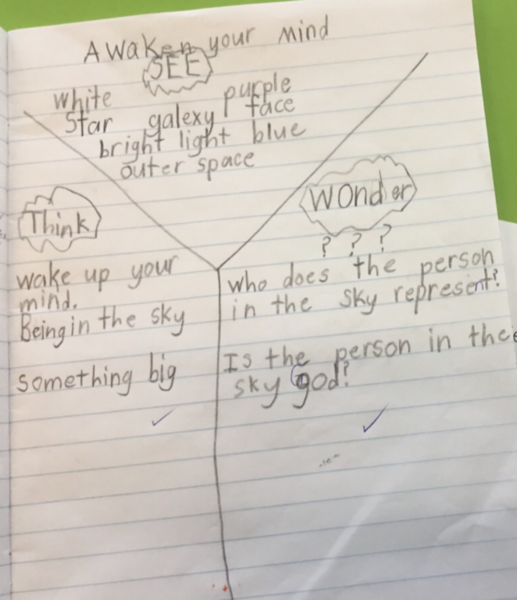 Awaken your mind
SEE
white purple
Star galexy face
bright light blue
outer space
Think
wake up your
mind.
Being in the sky
something big
Wonder
? ? ?
who does the person
in the sky represent?
Is the person in the
sky God?